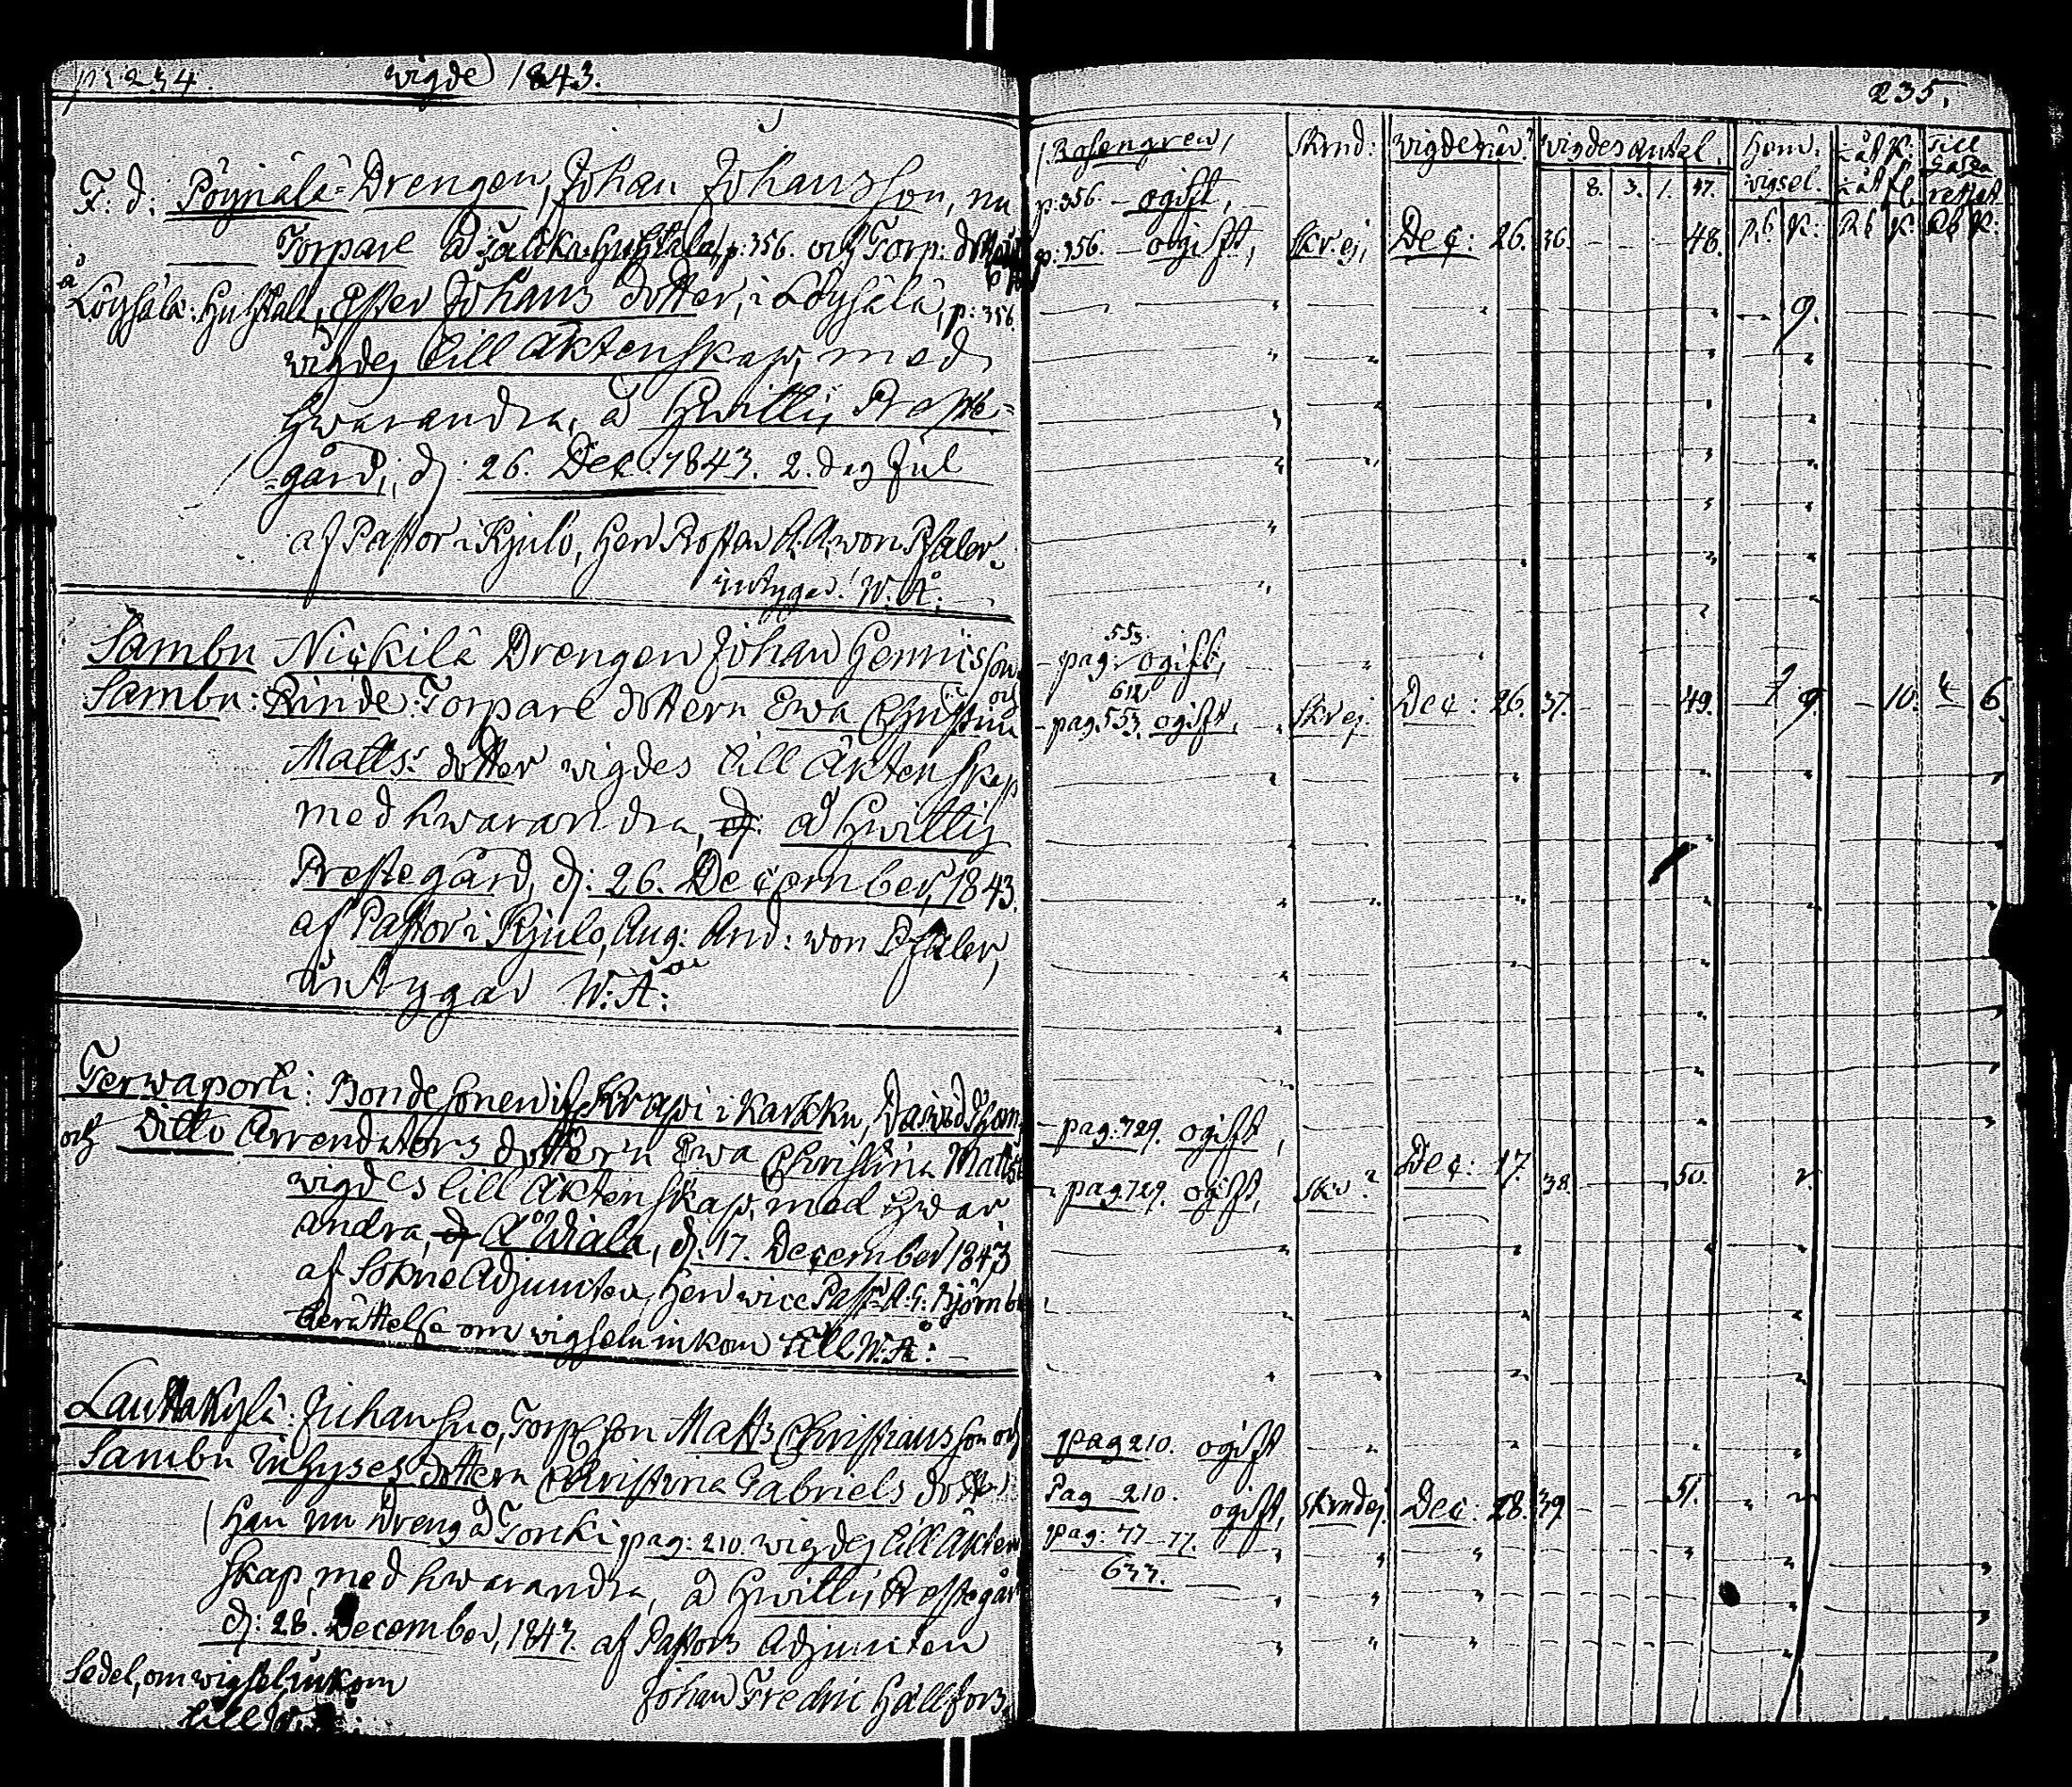 p: 234.
wigde 1843.
F: d: Pöyriälä- Drengen, Johan Johansson, nu
Torpare å p: 356. och Torp: dottern
å Löysälä: Huhtala, Ester Johans dotter, i Löysälä, p: 356.
wigdes till äktenskap, med
hwarandra, å Hwittis Preste=
=gård, d: 26. Dec: 1843. 2. dag Jul
af Pastor i Kjulo, Herr Prosten A: A: von Pfaler,
intygar W. Å:
Sambu Nickilä Drengen Johan Henricsson, och
Sambu: Rinde: Torpare dottern Ewa Christina
Matts: dotter wigdes till äktenskap
med hwarandra, å Hwittis
Prestegård, d: 26. December, 1843.
af Pastor i Kjulo, Aug: And: von Pfaler,
intygar W: Å:
Terwaporti: Bondesonen Krapi i Karkku, David Thom
och Ditto Arrendators dottern Ewa Christina Matts
wigdes till äktenskap, med hwar
andra, d: 17. December 1843
af Sokne Adjuncten, Herr vice Past: A: G: Björnb
berättelse om wigseln inkom till W: Å:
Lauttakylä: Juhansuo, Torp: son Matts Christiansson och
Sambu Inhyses dottern Christina Gabriels dotter
(han nu Dreng å Torcki pag: 210. wigdes till äkten
skap, med hwarandra, å Hwittis Prestegård
d: 28. December, 1843. af Pastors Adjuncten
Sedel, om wigsel, inkom
Johan Fredric Hällfors.
till
235.
/Rosengren/
Skrud:
wigdes antal.
Hem:
wigsel.
Till
8. 3. 1. 47.
p: 356. - ogift,
p: 356. - ogift, Skrej, Dec: 26. 36. 48.
9.
553.
- pag: ogift,
612
- pag. 553. ogift, Skrej Dec: 26. 37. 49. 9. 10. 6.
- pag: 729. ogift,
- pag. 729. ogift, Dec: 17. 38. 50.
pag 210. ogift
Pag 210. ogift, Dec: 28. 39. 51.
pag: 77 - 77.
633.